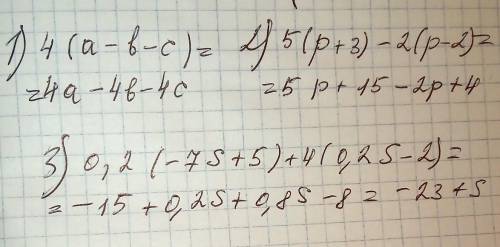 1) 4 (a - b - c) =
= 4a - 4b - 4c
2) 5 (p + 3) - 2 (p - 2) =
= 5 p + 15 - 2p + 4
3) 0,2 (-7S + 5) + 4 (0,2S - 2) =
= -15 + 0,2S + 0,8S - 8 = -23 + S